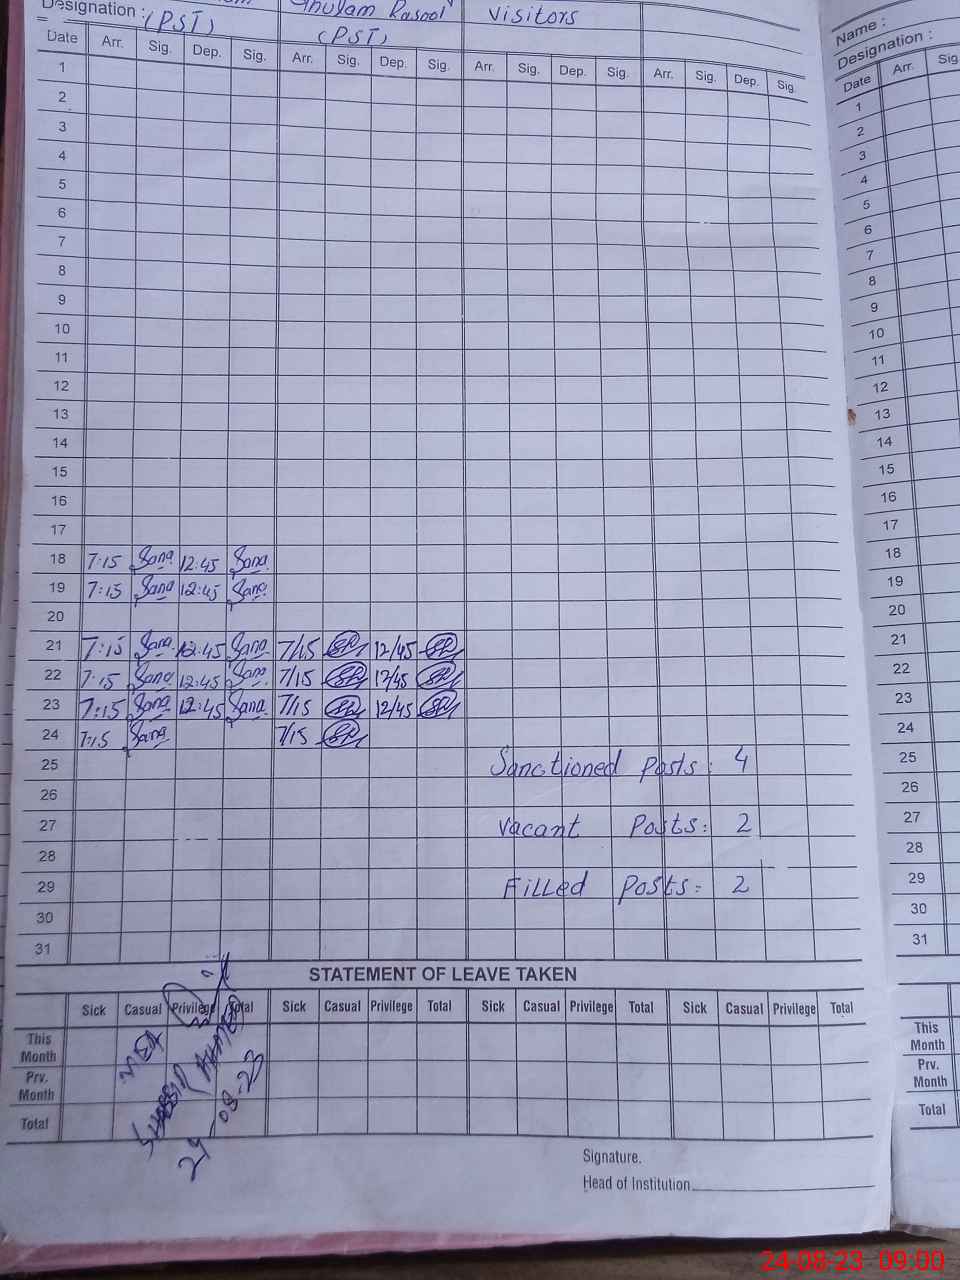 Designation : (PST) Ghulam Rasool (PST) Visitors
Date Arr. Sig. Dep. Sig. Arr. Sig. Dep. Sig. Arr. Sig. Dep. Sig. Arr. Sig. Dep. Sig.
1
2
3
4
5
6
7
8
9
10
11
12
13
14
15
16
17
18 7:15 Sana 12:45 Sana
19 7:15 Sana 12:45 Sana
20
21 7:15 Sana 12:45 Sana 7/15 12/45
22 7:15 Sana 12:45 Sana 7/15 12/45
23 7:15 Sana 12:45 Sana 7/15 12/45
24 7:15 Sana 7/15
25 Sanctioned posts: 4
26
27 Vacant Posts: 2
28
29 Filled Posts: 2
30
31
STATEMENT OF LEAVE TAKEN
Sick Casual Privilege Total Sick Casual Privilege Total Sick Casual Privilege Total Sick Casual Privilege Total
This Month
Prv. Month
Total
SHABBIR AHMED
24-08-23
Signature.
Head of Institution
Name :
Designation :
Date Arr. Sig
1
2
3
4
5
6
7
8
9
10
11
12
13
14
15
16
17
18
19
20
21
22
23
24
25
26
27
28
29
30
31
This Month
Prv. Month
Total
24-08-23 09:00